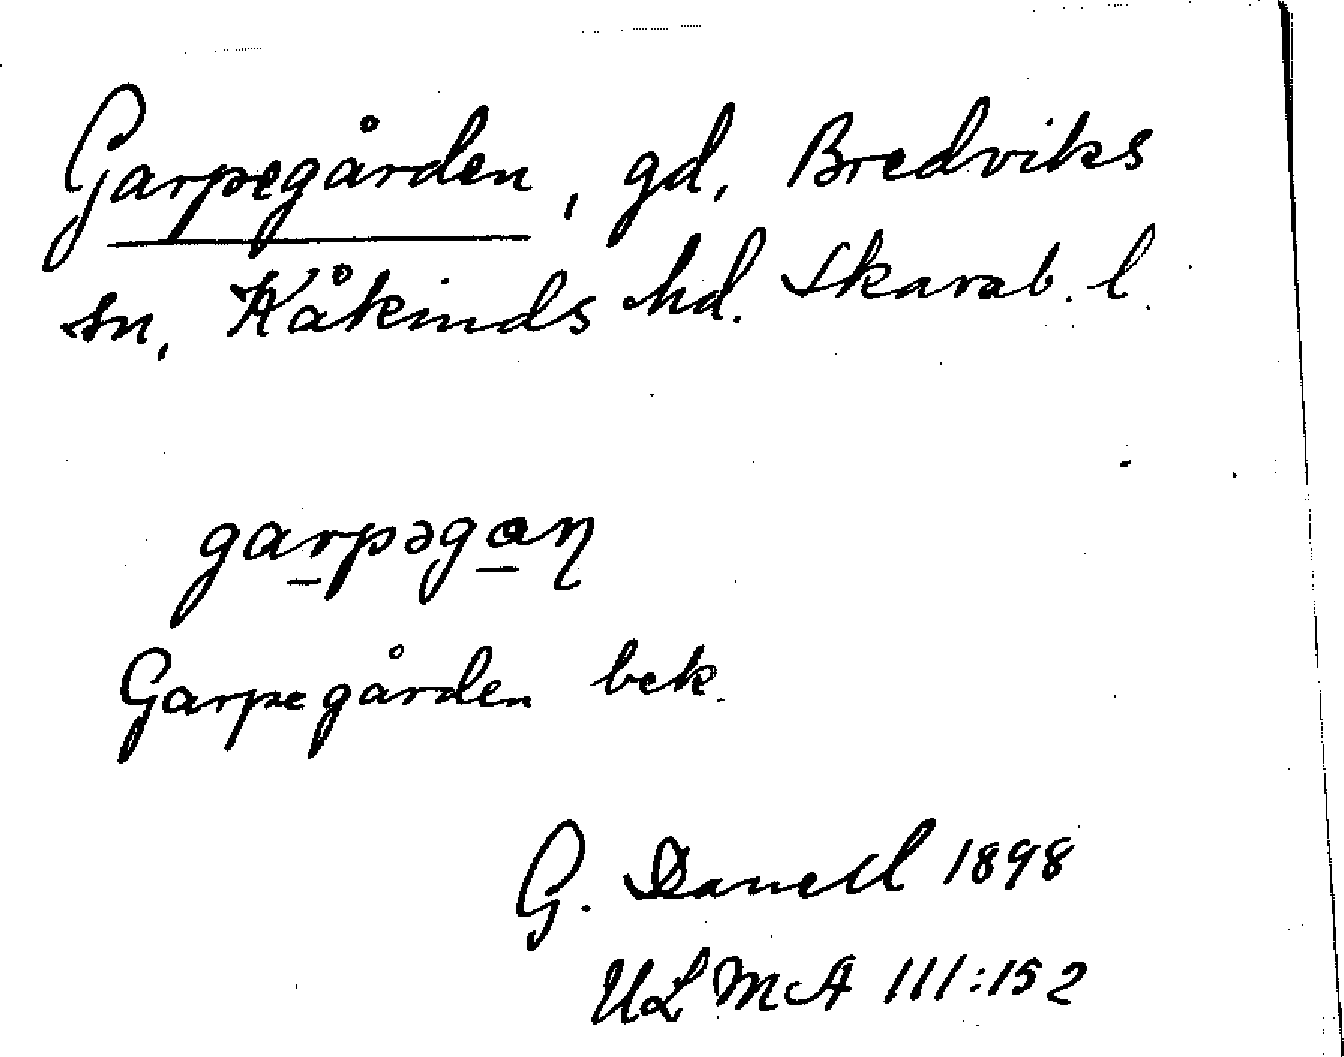 Garpegården, gd, Bredviks
sn, Kåkinds hd. Skarab. l.
garpəgɑɳ
Garpegården bek.
G. Danell 1898
ULMA 111:152